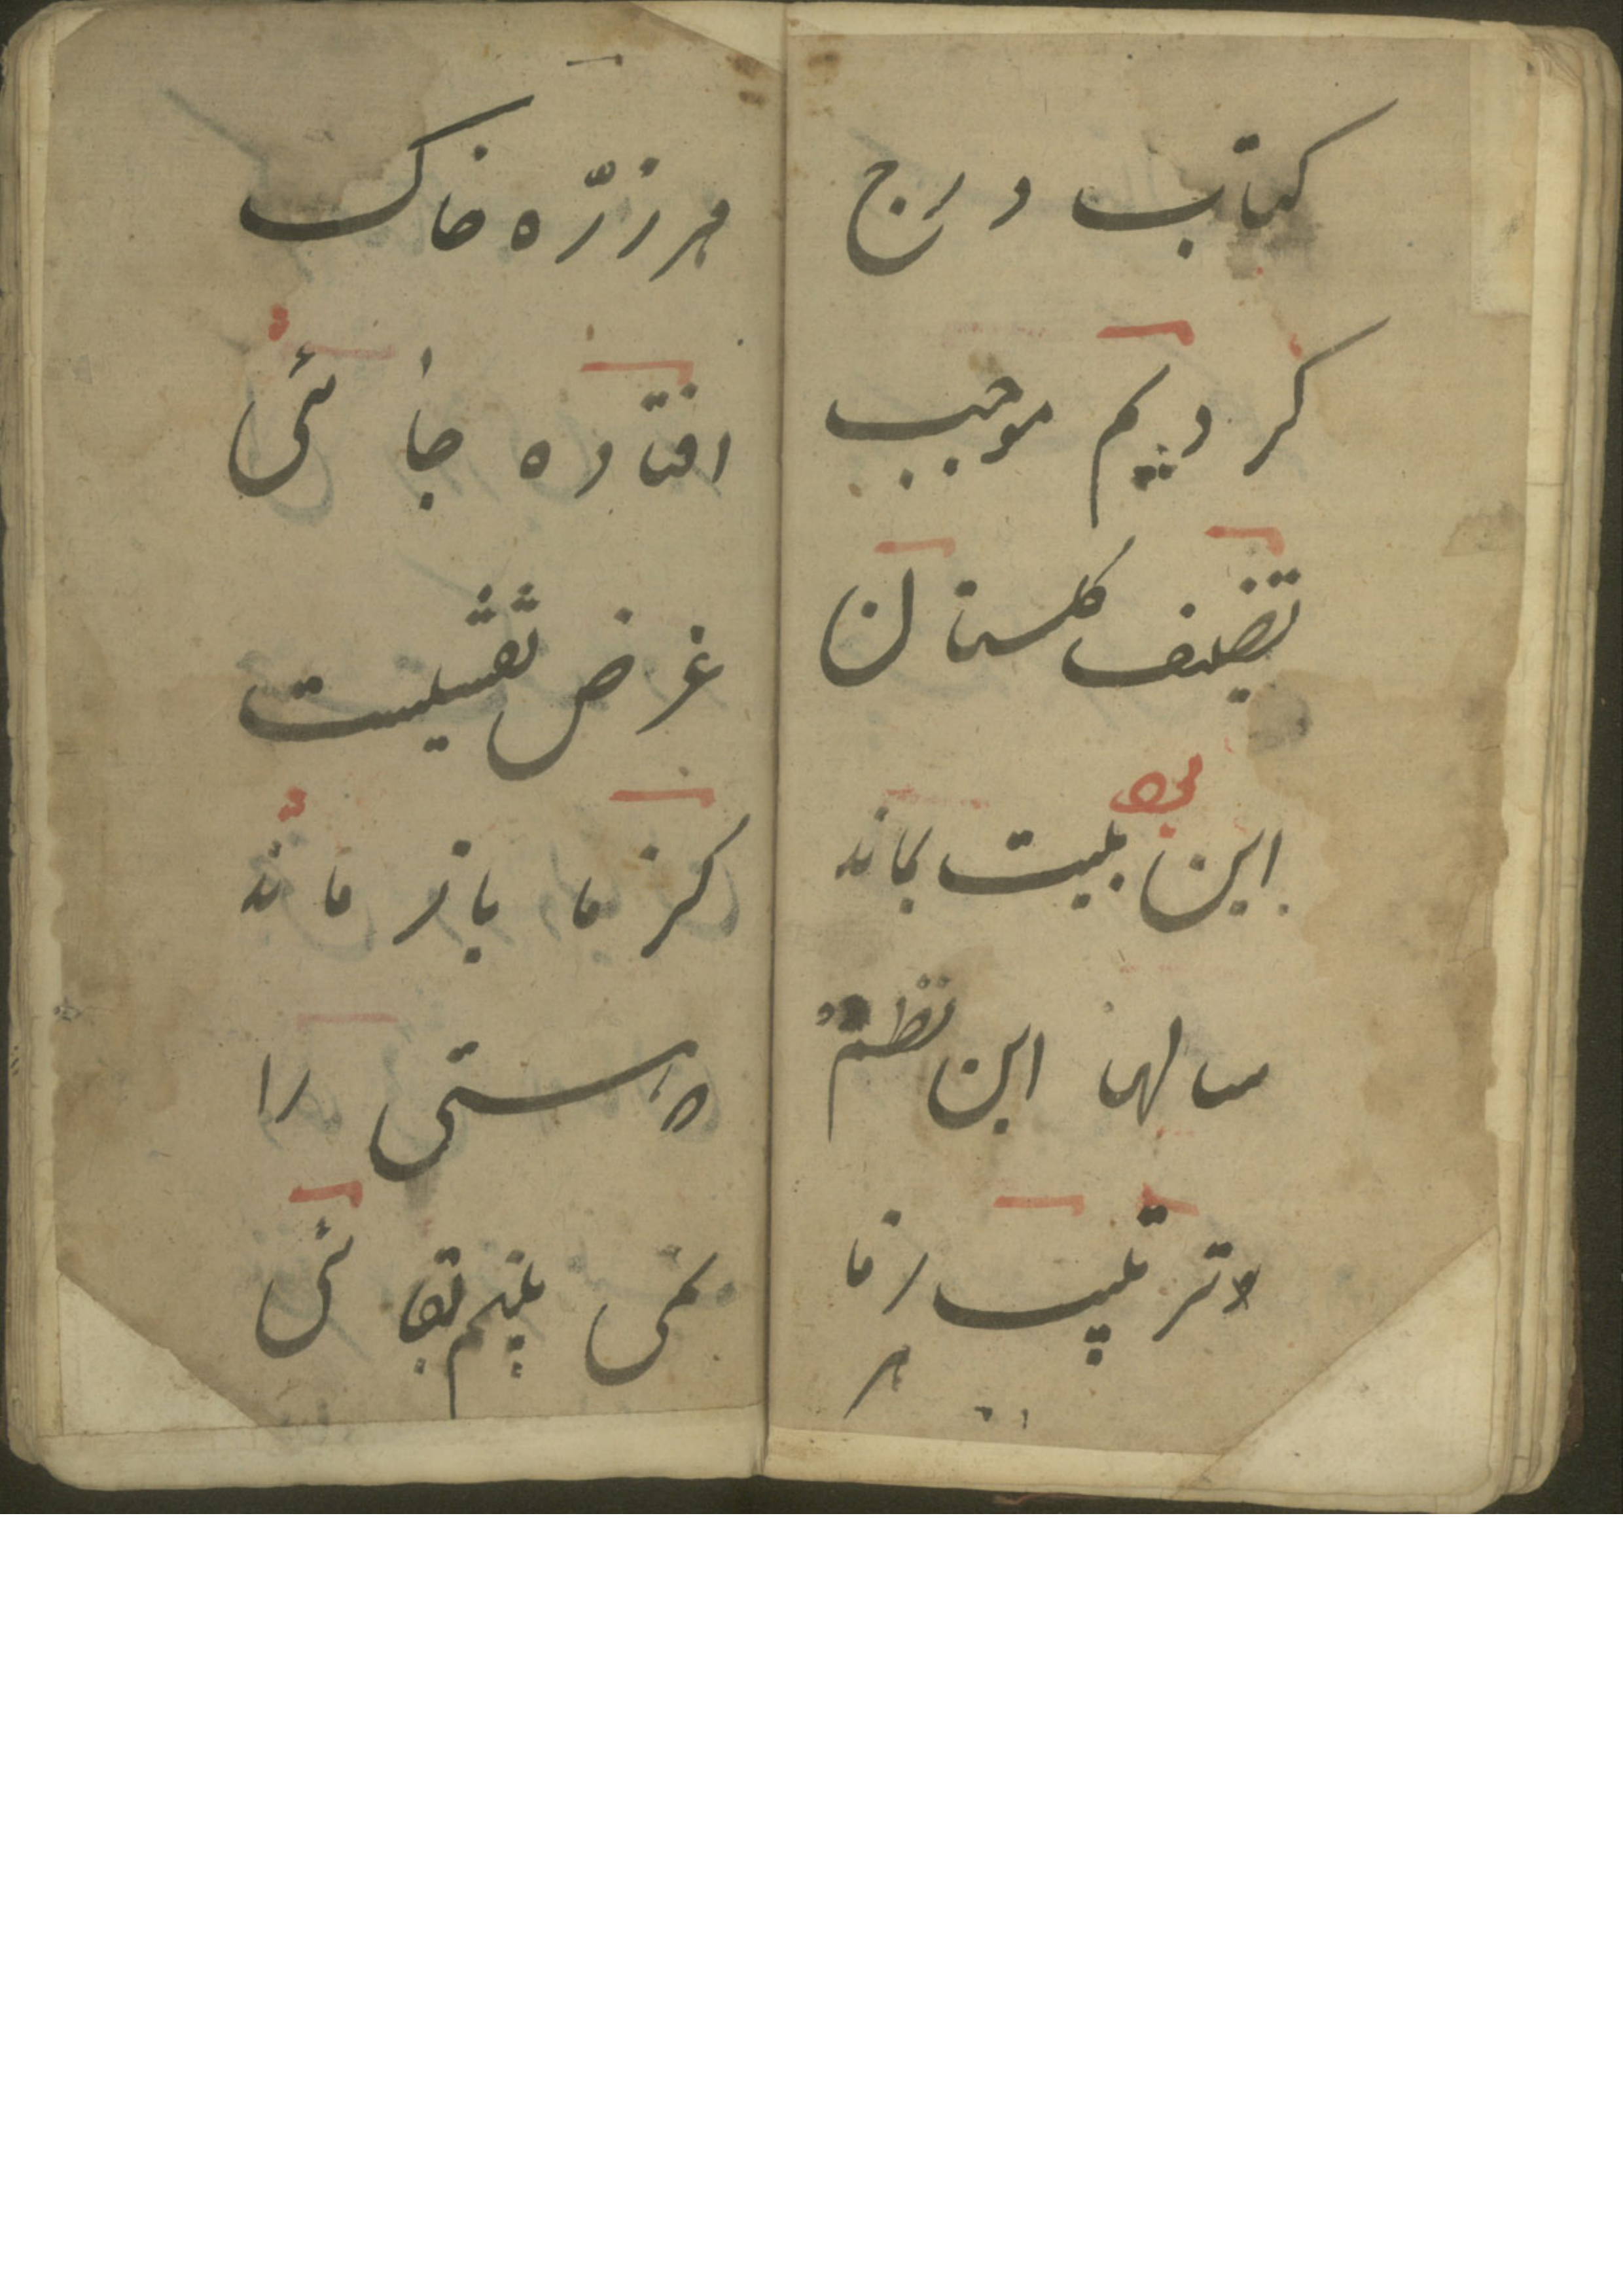 کتاب درج
کردیم موجب
تصنیف کلستان
این بیت بماند
سالها این نظم
وترتیب زما
هر
هر زرّه خاک
افتاده جائی
غرض نقشیست
کز ما باز ماند
هستی را
نمی بینم بقائی